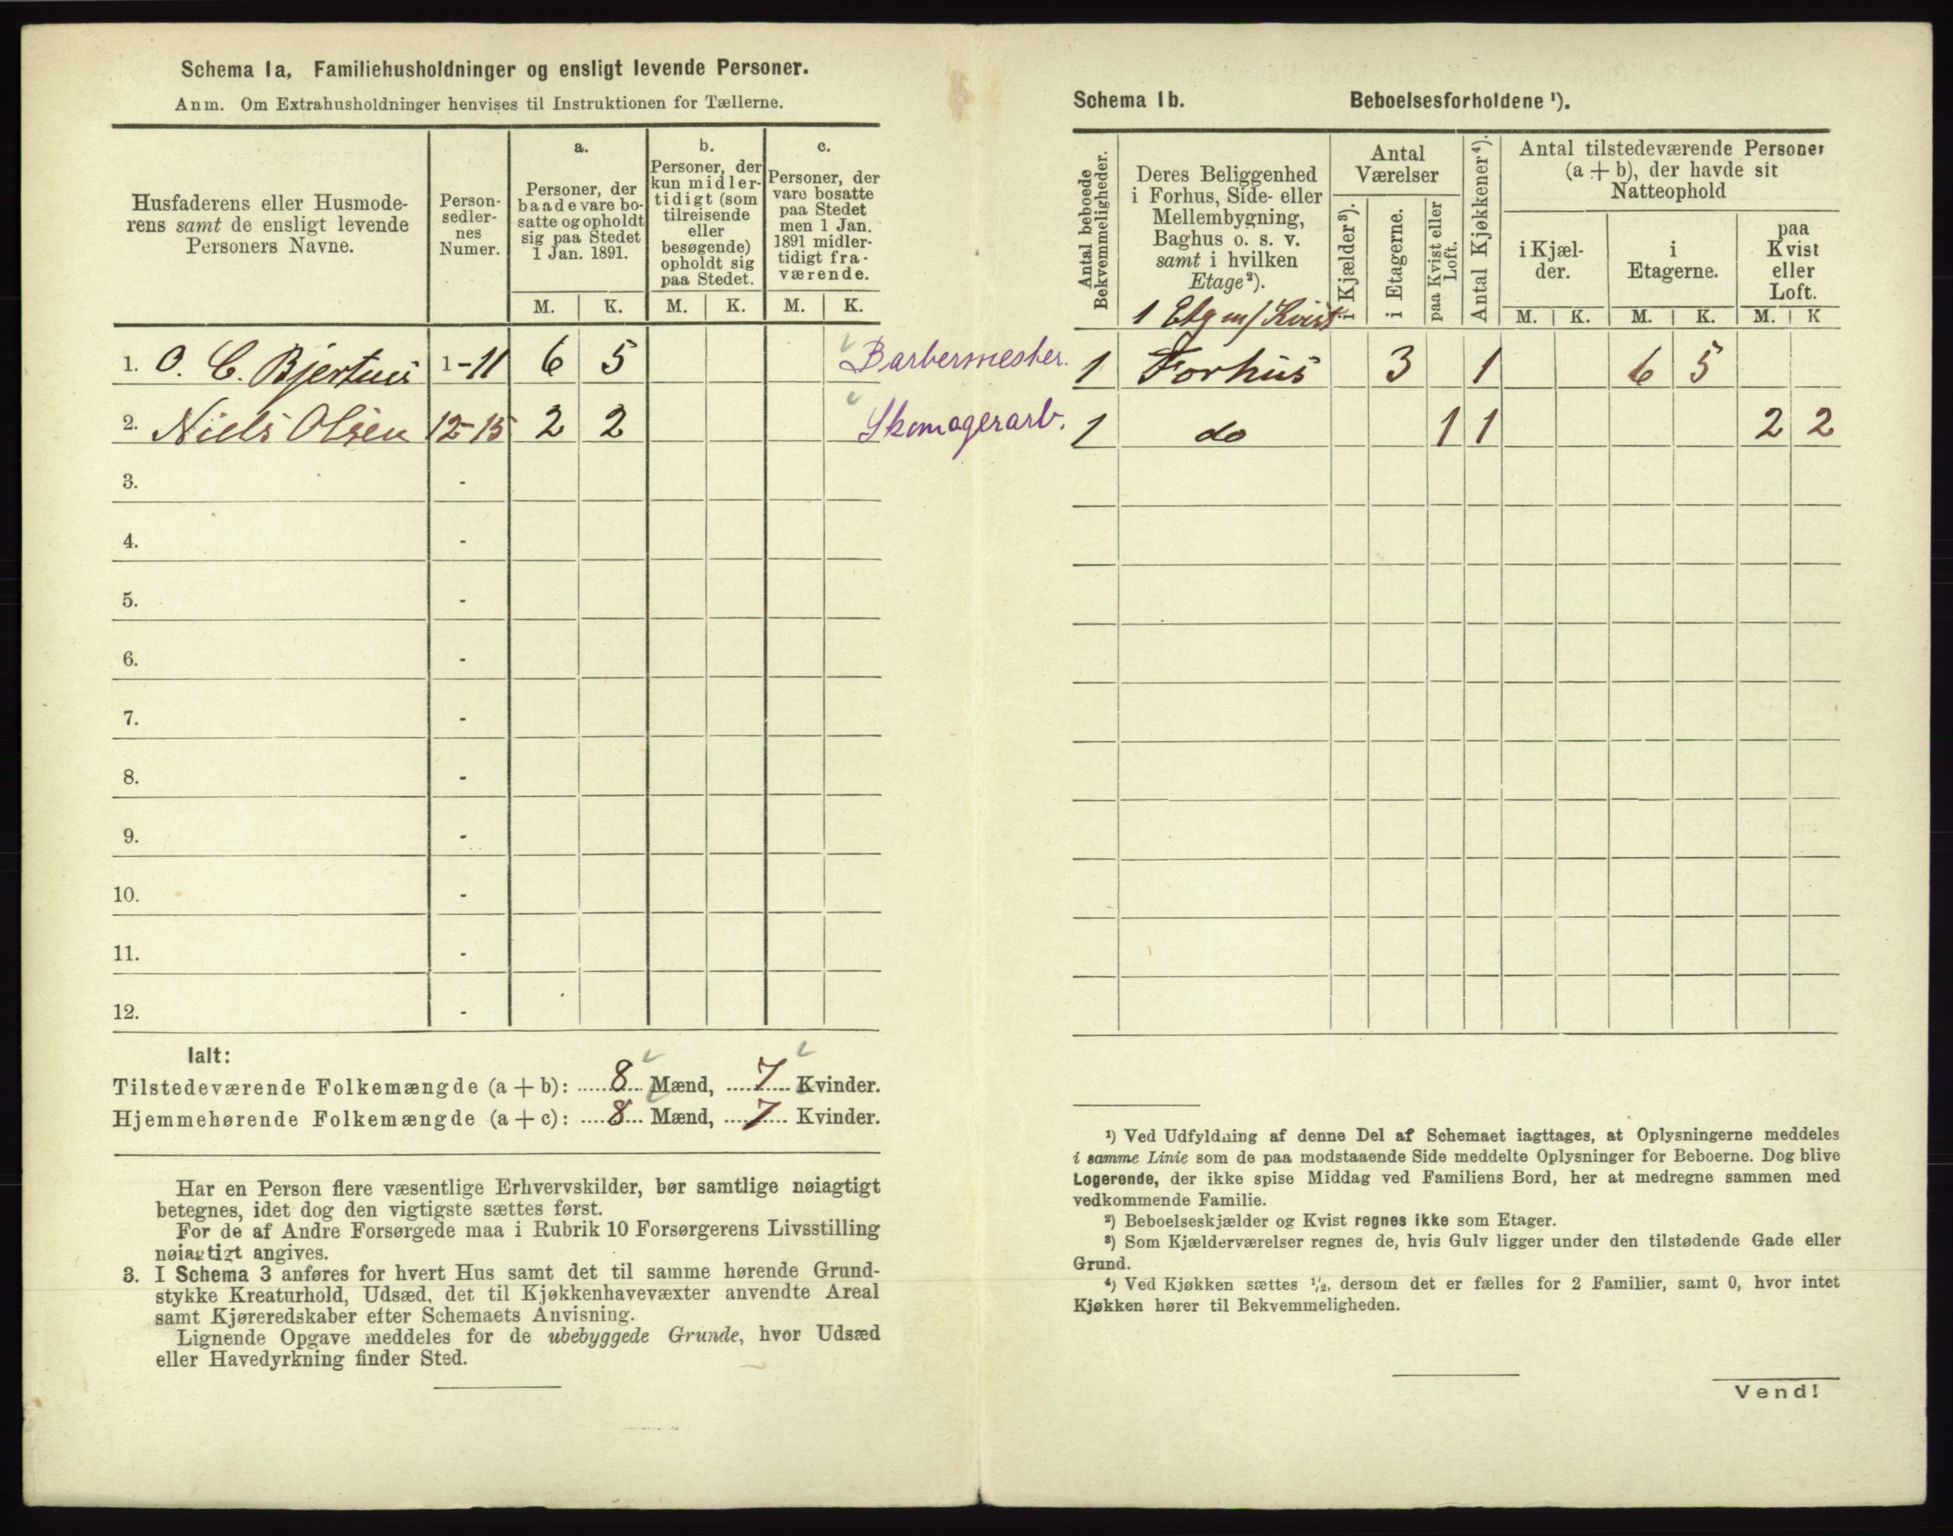 Schema 1a, Familiehusholdninger og ensligt levende Personer.
Anm. Om Extrahusholdninger henvises til Instruktionen for Tællerne.
Husfaderens eller Husmode-
rens samt de ensligt levende
Personers Navne.
Person-
sedler-
nes
Numer.
a.
Personer, der
baade vare bo-
satte og opholdt
sig paa Stedet
1 Jan. 1891.
b.
Personer, der
kun midler-
tidigt (som
tilreisende
eller
besøgende)
opholdt sig
paa Stedet.
c.
Personer, der
vare bosatte
paa Stedet
men 1 Jan.
1891 midler-
tidigt fra-
værende.
M. K. M. K. M. K.
1. O. C. Bjertnes 1-11 6 5 Barbermester.
2. Niels Olsen 12-15 2 2 Skomagerarb.
3. -
4. -
5. -
6. -
7. -
8. -
9. -
10. -
11. -
12. -
Ialt:
Tilstedeværende Folkemængde (a + b): ..... 8 ... Mænd, .... 7 .... Kvinder.
Hjemmehørende Folkemængde (a + c): .... 8 ... Mænd, .... 7 .... Kvinder.
Har en Person flere væsentlige Erhvervskilder, bør samtlige nøiagtigt
betegnes, idet dog den vigtigste sættes først.
For de af Andre Forsørgede maa i Rubrik 10 Forsørgerens Livsstilling
nøiagtigt angives.
3. I Schema 3 anføres for hvert Hus samt det til samme hørende Grund-
stykke Kreaturhold, Udsæd, det til Kjøkkenhavevæxter anvendte Areal
samt Kjøreredskaber efter Schemaets Anvisning.
Lignende Opgave meddeles for de ubebyggede Grunde, hvor Udsæd
eller Havedyrkning finder Sted.
Schema 1b. Beboelsesforholdene ¹).
Antal beboede
Bekvemmeligheder.
Deres Beliggenhed
i Forhus, Side- eller
Mellembygning,
Baghus o. s. v.
samt i hvilken
Etage²).
Antal
Værelser
i Kjælder³).
i Etagerne.
paa Kvist eller
Loft.
Antal Kjøkkener⁴).
Antal tilstedeværende Personer
(a + b), der havde sit
Natteophold
i Kjæl-
der.
i
Etagerne.
paa
Kvist
eller
Loft.
M. K. M. K. M. K
1 Etg m/ Kvist
1 Forhus 3 1 6 5
1 do 1 1 2 2
¹) Ved Udfyldning af denne Del af Schemaet iagttages, at Oplysningerne meddeles
i samme Linie som de paa modstaaende Side meddelte Oplysninger for Beboerne. Dog blive
Logerende, der ikke spise Middag ved Familiens Bord, her at medregne sammen med
vedkommende Familie.
²) Beboelseskjælder og Kvist regnes ikke som Etager.
³) Som Kjælderværelser regnes de, hvis Gulv ligger under den tilstødende Gade eller
Grund.
⁴) Ved Kjøkken sættes ½, dersom det er fælles for 2 Familier, samt 0, hvor intet
Kjøkken hører til Bekvemmeligheden.
Vend!